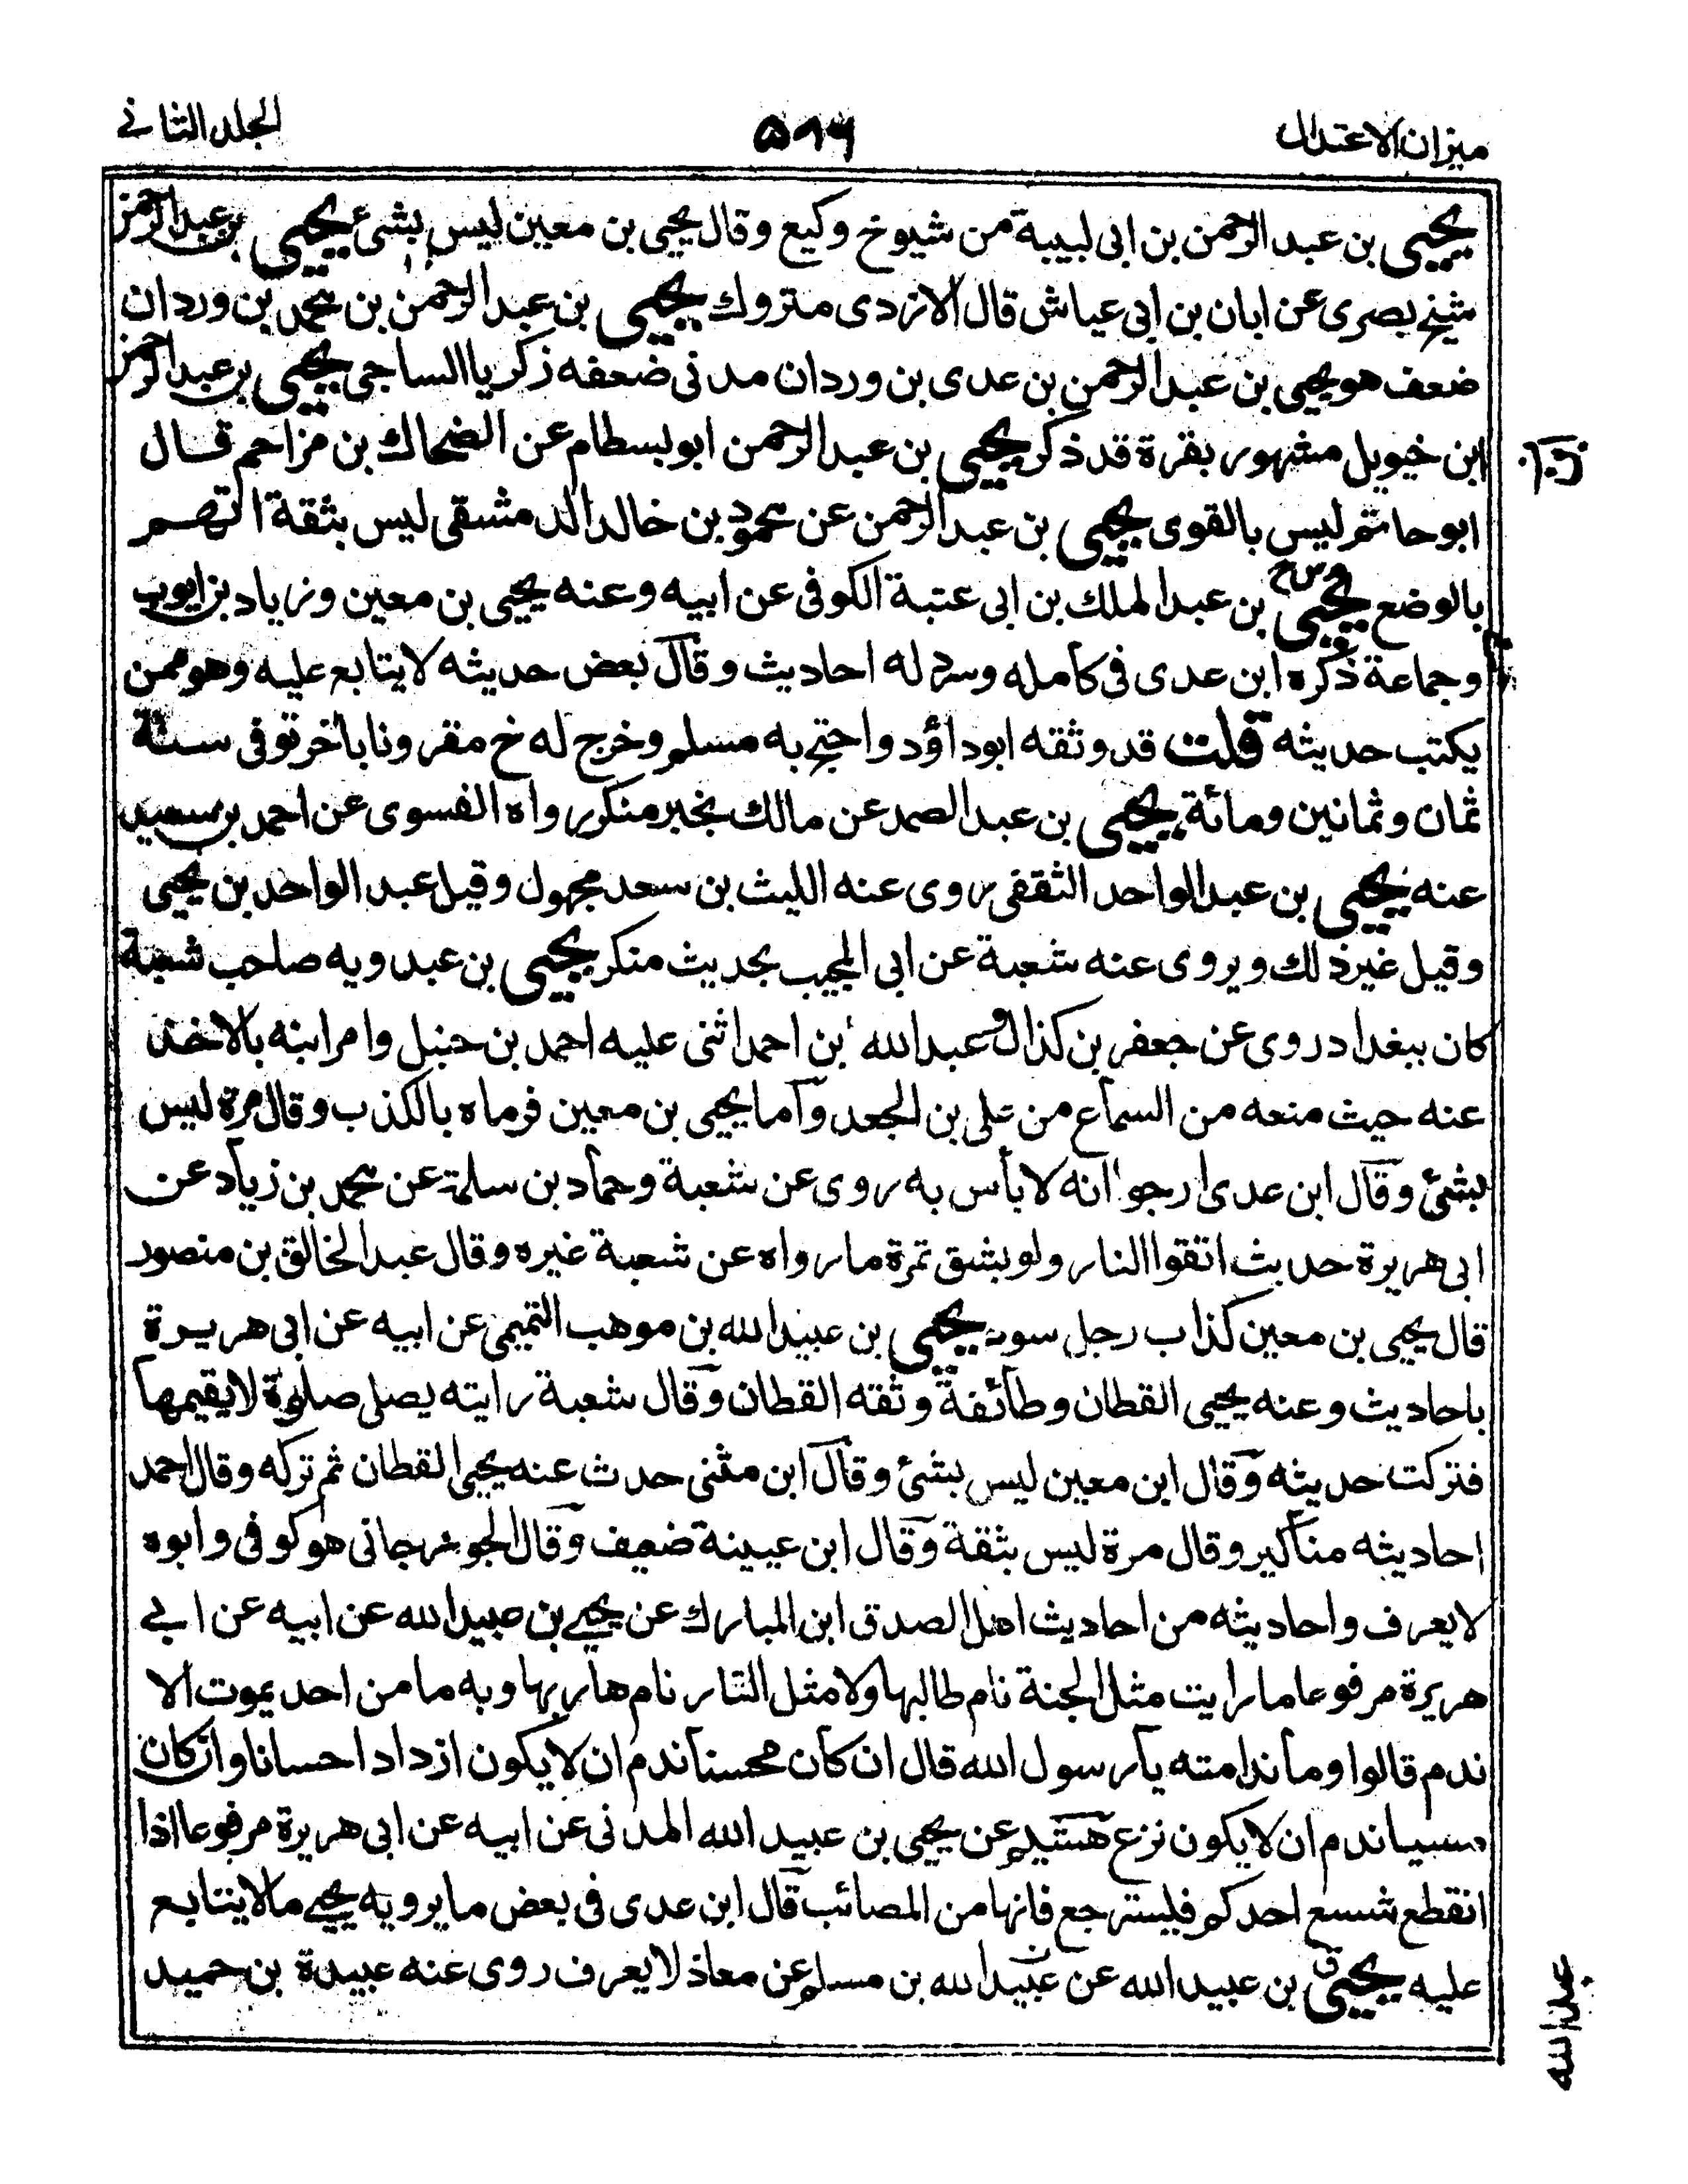 ميزان الاعتدال
٥٩٦
الجلد الثاني
يحيى بن عبد الرحمن بن ابى لبيبة من شيوخ وكيع وقال يحيى بن معين ليس بشئ يحيى بن عبد الرحمن
شيخ بصرى عن ابان بن ابى عياش قال الازدى متروك يحيى بن عبد الرحمن بن محمد بن وردان
ضعف هو يحيى بن عبد الرحمن بن عدى بن وردان مدنى ضعفه زكريا الساجى يحيى بن عبد الرحمن
ابن خيويل مشهور بقرة قد ذكر يحيى بن عبد الرحمن ابو بسطام عن الضحاك بن مزاحم قال
ابو حاتم ليس بالقوى يحيى بن عبد الرحمن عن محمود بن خالد الدمشقى ليس بثقة اتهم
بالوضع يحيى بن عبد الملك بن ابى عتبة الكوفى عن ابيه وعنه يحيى بن معين وزياد بن ايوب
وجماعة ذكره ابن عدى فى كامله وسرد له احاديث وقال بعض حديثه لا يتابع عليه وهو ممن
يكتب حديثه قلت قد وثقه ابو داؤد واحتج به مسلم وخرج له خ مقرونا باخر توفى سنة
ثمان وثمانين ومائة يحيى بن عبد الصمد عن مالك بخبر منكر رواه الفسوى عن احمد بن سعيد
عنه يحيى بن عبد الواحد الثقفى روى عنه الليث بن سعد مجهول وقيل عبد الواحد بن يحيى
وقيل غير ذلك ويروى عنه شعبة عن ابى المجيب بحديث منكر يحيى بن عبدويه صاحب شعبة
كان ببغداد روى عن جعفر بن كذال وعبد الله بن احمد اثنى عليه احمد بن حنبل وامر ابنه بالاخذ
عنه حيث منعه من السماع من على بن الجعد وآما يحيى بن معين فرماه بالكذب وقال مرة ليس
بشئ وقال ابن عدى ارجو انه لا بأس به روى عن شعبة وحماد بن سلمة عن محمد بن زياد عن
ابى هريرة حديث اتقوا النار ولو بشق تمرة ما رواه عن شعبة غيره وقال عبد الخالق بن منصور
قال يحيى بن معين كذاب رجل سوء يحيى بن عبيد الله بن موهب التميمى عن ابيه عن ابى هريرة
باحاديث وعنه يحيى القطان وطائفة وثقه القطان وقال شعبة رايته يصلى صلوة لا يقيمها
فتركت حديثه وقال ابن معين ليس بشئ وقال ابن مثنى حدث عنه يحيى القطان ثم تركه وقال احمد
احاديثه مناكير وقال مرة ليس بثقة وقال ابن عيينة ضعيف وقال الجوزجانى هو كوفى وابوه
لا يعرف واحاديثه من احاديث اهل الصدق ابن المبارك عن يحيى بن عبيد الله عن ابيه عن ابي
هريرة مرفوعا ما رايت مثل الجنة نام طالبها ولا مثل النار نام هاربها وبه ما من احد يموت الا
ندم قالوا وما ندامته يا رسول الله قال ان كان محسنا ندم ان لا يكون ازداد احسانا وان كان
مسيا ندم ان لا يكون نزع هشيم عن يحيى بن عبيد الله المدنى عن ابيه عن ابى هريرة مرفوعا اذا
انقطع شسع احدكم فليسترجع فانها من المصائب قال ابن عدى فى بعض ما يرويه يحيى ما لا يتابع
عليه يحيى بن عبيد الله عن عبيد الله بن مسلم عن معاذ لا يعرف روى عنه عبيدة بن حميد